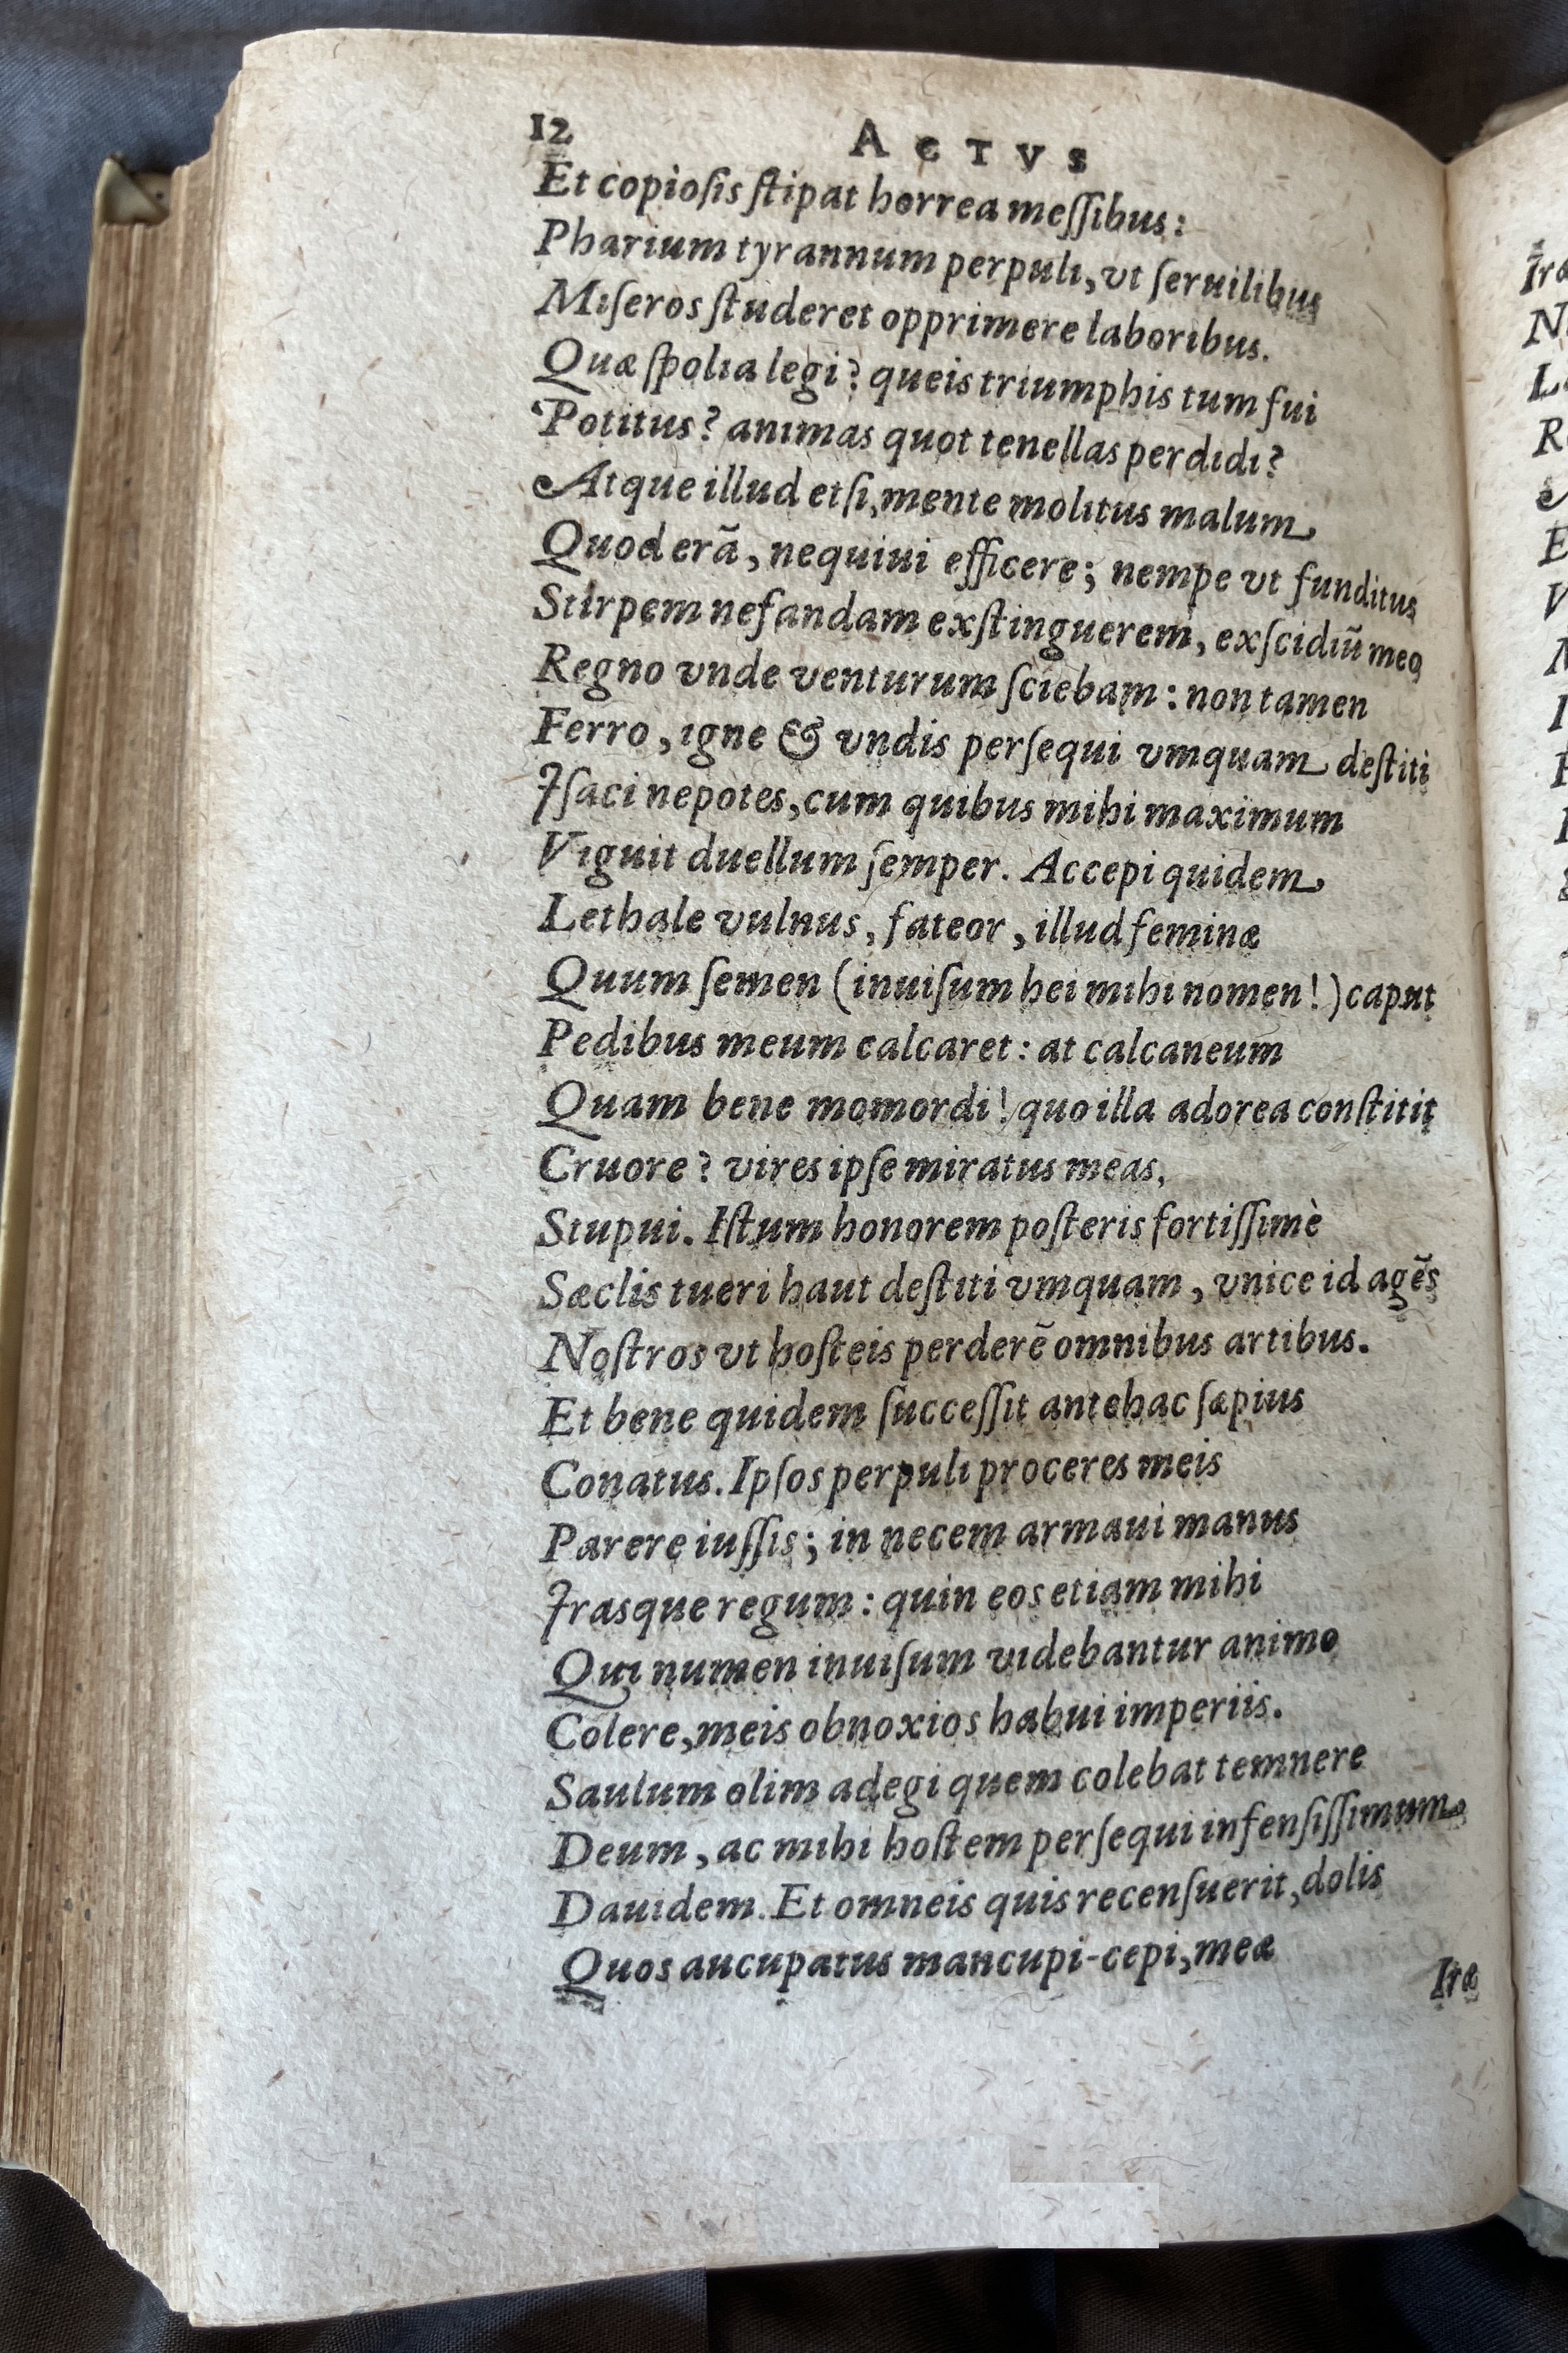 12 ACTVS
Et copioſis ſtipat horrea meſſibus:
Pharium tyrannum perpuli, vt ſeruilibus
Miſeros ſtuderet opprimere laboribus.
Quæ ſpolia legi? queis triumphis tum fui
Potitus? animas quot tenellas perdidi?
Atque illud etſi, mente molitus malum
Quod erã, nequiui efficere; nempe vt funditus
Stirpem nefandam exſtinguerem, exſcidiũ meo
Regno vnde venturum ſciebam: non tamen
Ferro, igne & vndis perſequi vmquam deſtiti
Iſaci nepotes, cum quibus mihi maximum
Viguit duellum ſemper. Accepi quidem
Lethale vulnus, fateor, illud feminæ
Quum ſemen (inuiſum hei mihi nomen!) caput
Pedibus meum calcaret: at calcaneum
Quam bene momordi! quo illa adorea conſtitit
Cruore? vires ipſe miratus meas,
Stupui. Iſtum honorem poſteris fortiſſimè
Sæclis tueri haut deſtiti vmquam, vnice id agẽs
Noſtros vt hoſteis perderẽ omnibus artibus.
Et bene quidem ſucceſſit antehac ſæpius
Conatus. Ipſos perpuli proceres meis
Parere iuſſis; in necem armaui manus
Iraſque regum: quin eos etiam mihi
Qui numen inuiſum videbantur animo
Colere, meis obnoxios habui imperiis.
Saulum olim adegi quem colebat temnere
Deum, ac mihi hoſtem perſequi infenſiſſimum
Dauidem. Et omneis quis recenſuerit, dolis
Quos aucupatus mancupi-cepi, meæ
Iræ